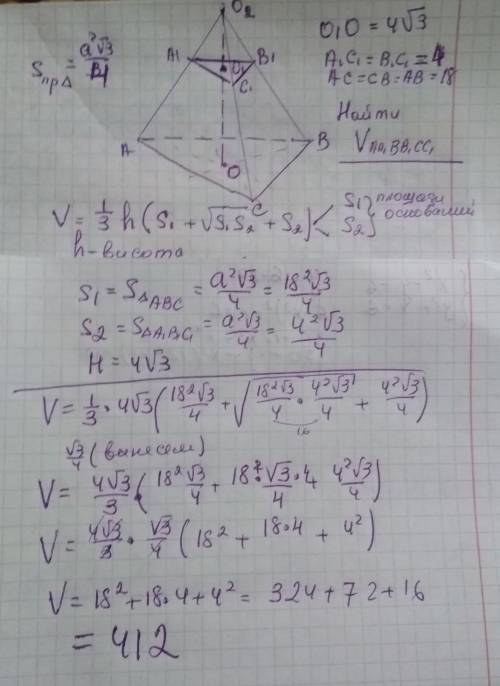 O₁O = 4√3
SпрΔ = a²√3/4
A₁C₁ = B₁C₁ = 4
AC = CB = AB = 18
Найти
V AA₁BB₁CC₁
O₂
A₁
B₁
O₁
C₁
A
B
O
C
V = 1/3 h (S₁ + √S₁S₂ + S₂) < S₁ } площади
S₂ } оснований
h - висота
S₁ = S△ABC = a²√3/4 = 18²√3/4
S₂ = S△A₁B₁C₁ = a²√3/4 = 4²√3/4
H = 4√3
V = 1/3 · 4√3 (18²√3/4 + √(18²√3/4 · 4²√3/4) + 4²√3/4)
16
√3/4 (вынесем)
V = 4√3/3 · (18²√3/4 + 18·√3·4/4 + 4²√3/4)
V = 4√3/3 · √3/4 (18² + 18·4 + 4²)
V = 18² + 18·4 + 4² = 324 + 72 + 16
= 412